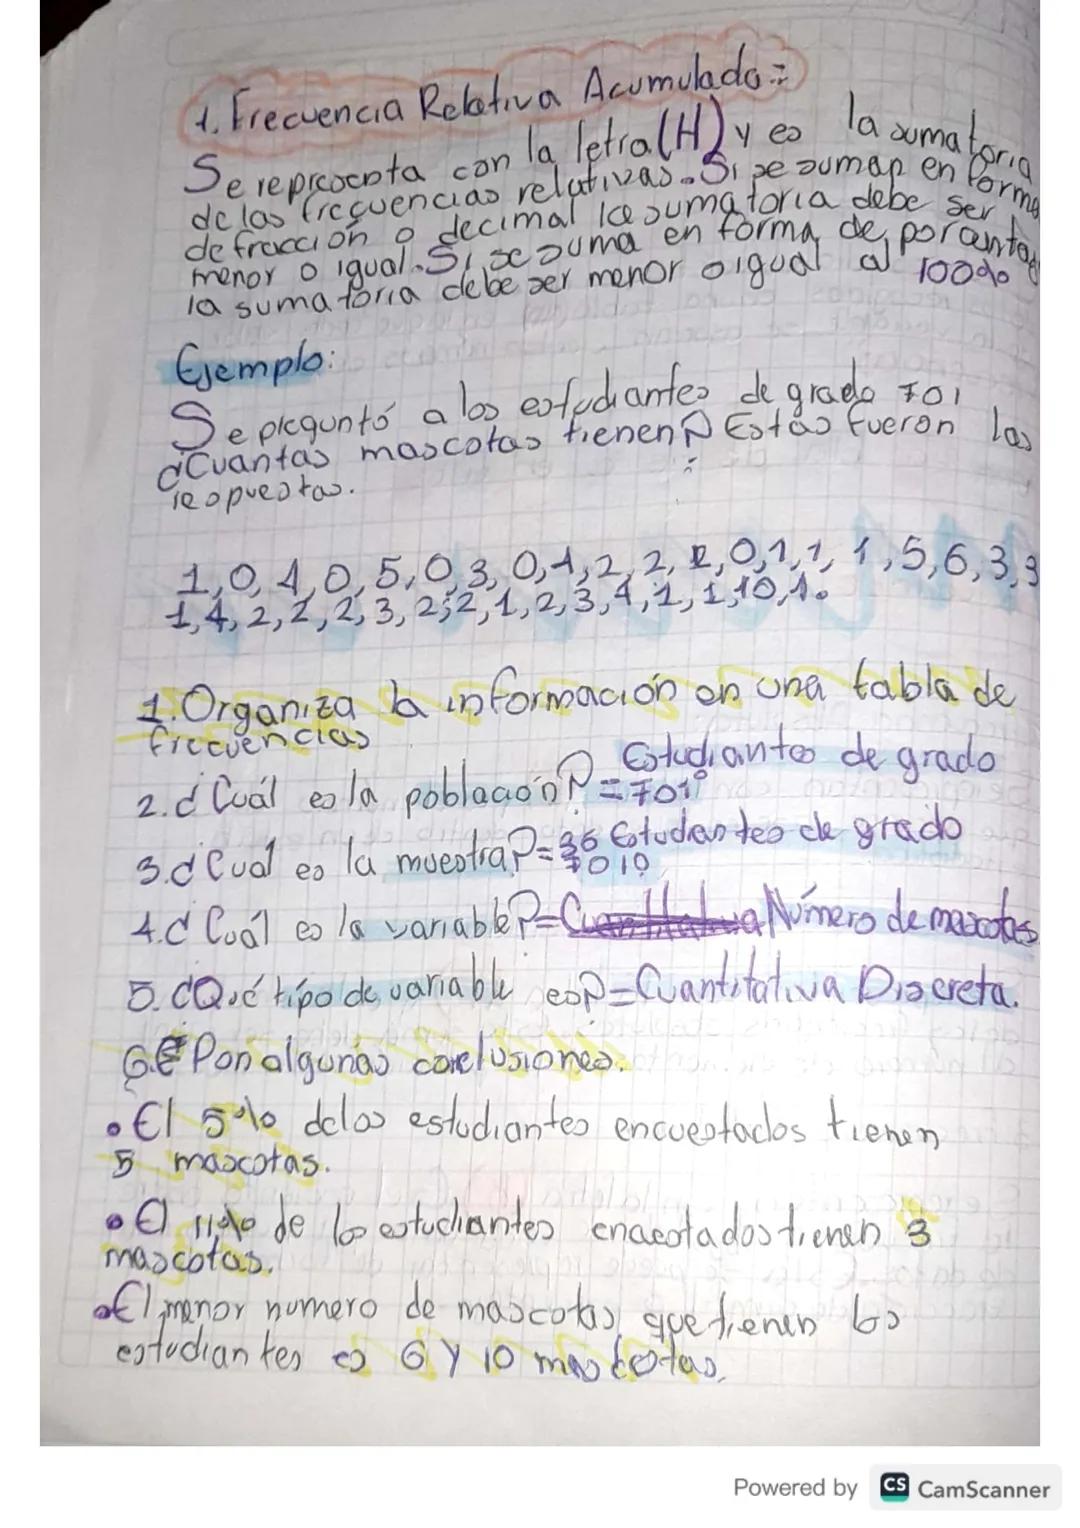 1. Frecuencia Relativa Acumulada:
Se representa con la letra (H) y es la sumatoria
de las frecuencias relativas. Si se suman en forma
de fracción o decimal la sumatoria debe ser
menor o igual. Si se suma en forma de porcentaje
la sumatoria debe ser menor o igual al 100%
Ejemplo:
Se preguntó a los estudiantes de grado 701
¿Cuantas mascotas tienen? Estas fueron las
respuestas.
1, 0, 1, 0, 5, 0, 3, 0, 1, 2, 2, 2, 0, 1, 1, 1, 5, 6, 3, 3
1, 4, 2, 2, 2, 3, 2, 2, 1, 2, 3, 4, 1, 1, 10, 1.
1. Organiza la información en una tabla de
frecuencias
2. ¿Cuál es la población? = Estudiantes de grado
701°
3. ¿Cual es la muestra? = 36 Estudiantes de grado
701°
4. ¿Cuál es la variable? = Número de mascotas
5. ¿Qué tipo de variable es? = Cuantitativa Discreta.
6. Pon algunas conclusiones.
• El 5% delos estudiantes encuestados tienen
5 mascotas.
• El 11% de los estudiantes encuestados tienen 3
mascotas.
• El menor numero de mascotas que tienen los
estudiantes es 6 y 10 mascotas.
Powered by CS CamScanner